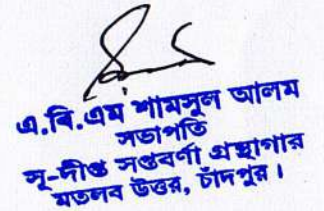 এ.বি.এম শামসুল আলম
সভাপতি
সূ-দীপ্ত সপ্তবর্ণা গ্রন্থাগার
মতলব উত্তর, চাঁদপুর।